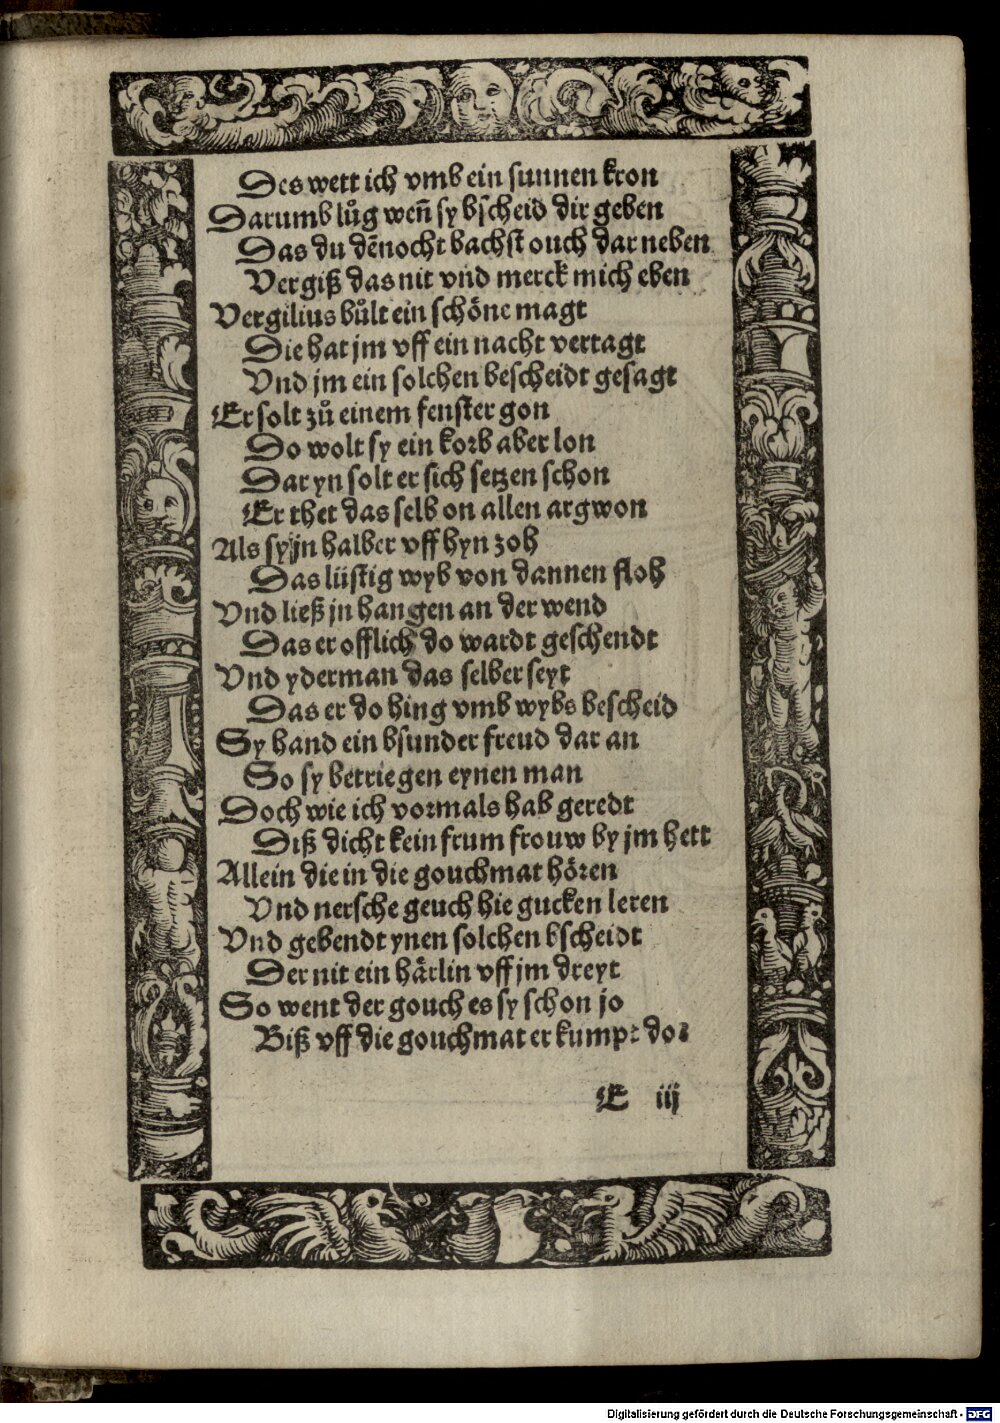 Des wett ich vmb ein sunnen kron
Darumb lůg weñ sy bscheid dir geben
Das du dẽnocht bachst ouch dar neben
Vergiß das nit vnd merck mich eben
Vergilius bůlt ein schöne magt
Die hat jm vff ein nacht vertagt
Vnd jm ein solchen bescheidt gesagt
Er solt zů einem fenster gon
Do wolt sy ein korb aber lon
Dar yn solt er sich setzen schon
Er thet das selb on allen argwon
Als sy jn halber vff hyn zoh
Das lüstig wyb von dannen floh
Vnd ließ jn hangen an der wend
Das er offlich do wardt geschendt
Vnd yderman das selber seyt
Das er do hing vmb wybs bescheid
Sy hand ein bsunder freud dar an
So sy betriegen eynen man
Doch wie ich vormals hab geredt
Diß dicht kein frum frouw by jm hett
Allein die in die gouchmat hören
Vnd nersche geuch hie gucken leren
Vnd gebendt ynen solchen bscheidt
Der nit ein härlin vff jm dreyt
So went der gouch es sy schon jo
Biß vff die gouchmat er kumpt do
E iij
Digitalisierung gefördert durch die Deutsche Forschungsgemeinschaft - DFG